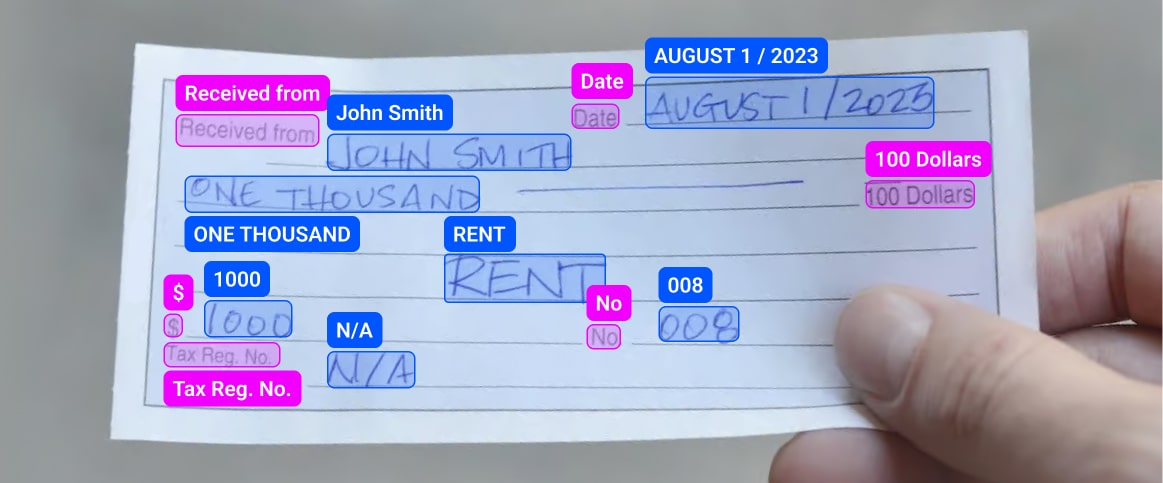 Received from
Received from
John Smith
JOHN SMITH
Date
Date
AUGUST 1 / 2023
AUGUST 1 / 2023
ONE THOUSAND
ONE THOUSAND
100 Dollars
100 Dollars
RENT
RENT
$
$
1000
1000
No
No
008
008
Tax Reg. No.
Tax Reg. No.
N/A
N/A